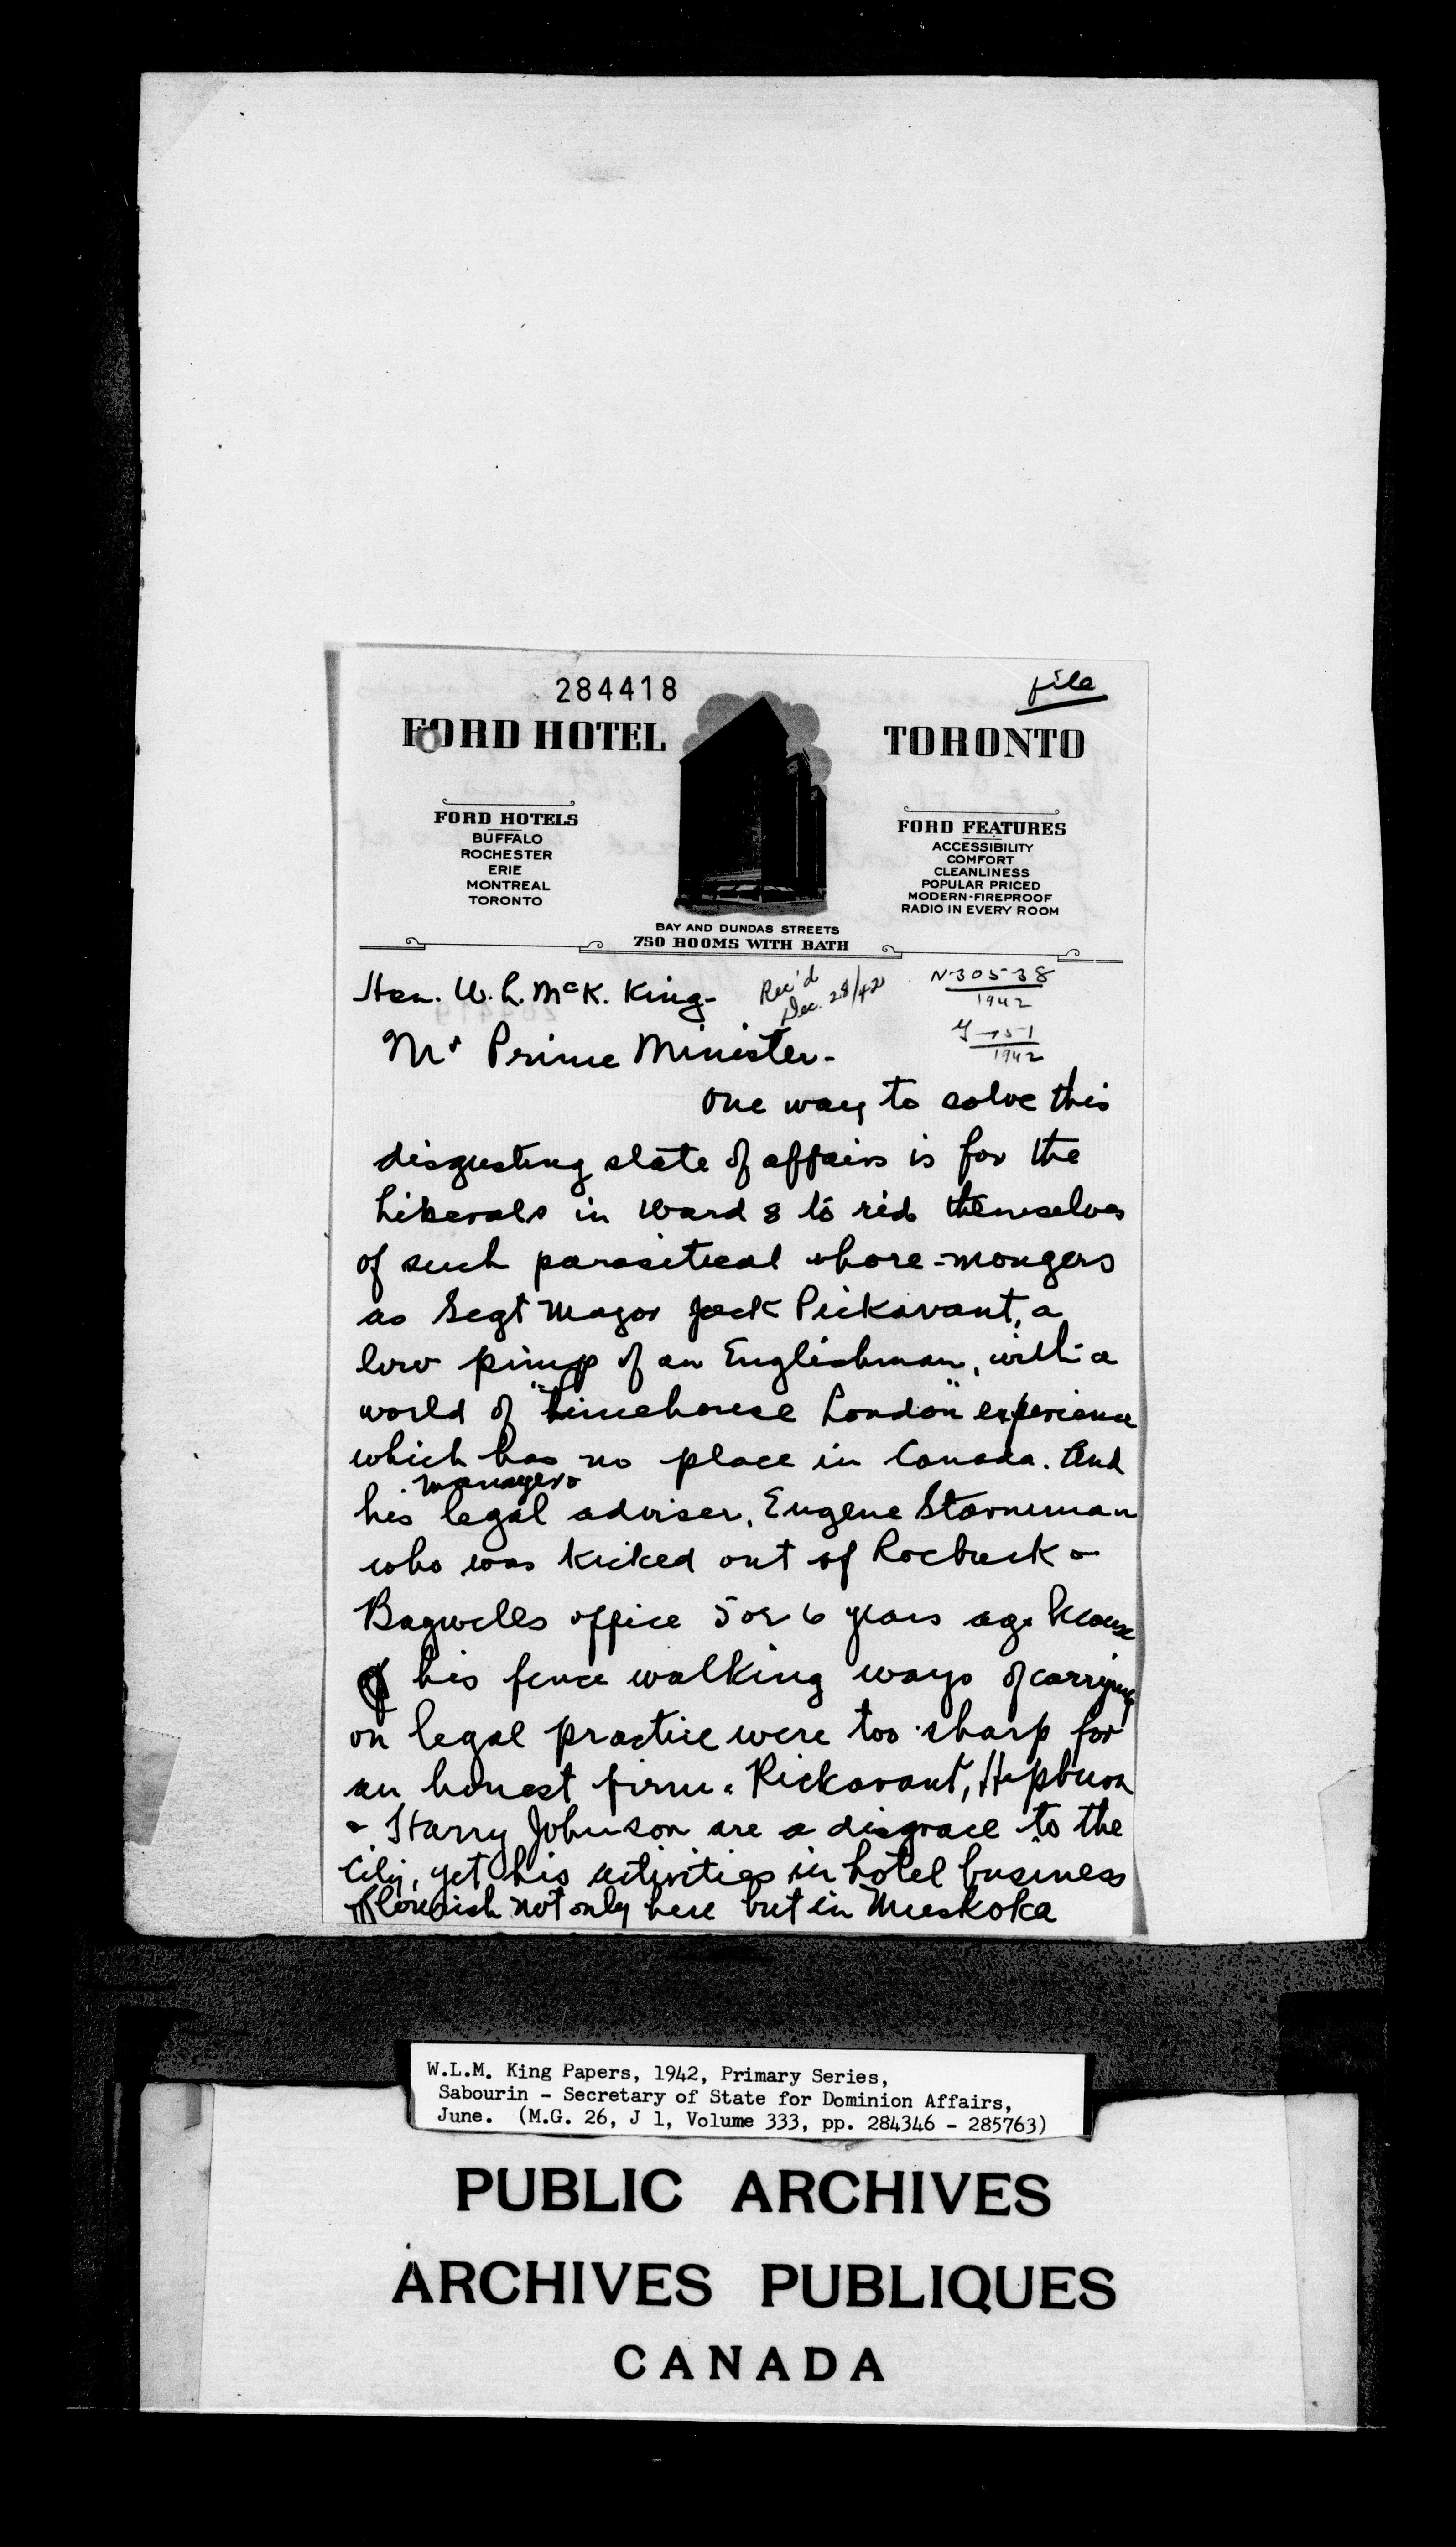 284418
file
FORD HOTEL
TORONTO
FORD HOTELS
BUFFALO
ROCHESTER
ERIE
MONTREAL
TORONTO
FORD FEATURES
ACCESSIBILITY
COMFORT
CLEANLINESS
POPULAR PRICED
MODERN-FIREPROOF
RADIO IN EVERY ROOM
BAY AND DUNDAS STREETS
750 ROOMS WITH BATH
Hon. W. L. McK. King-
Rec'd
Dec. 28/42
N-305-38
1942
1942
Mr Prime Minister-
One way to solve this
disgusting state of affairs is for the
Liberals in Ward 8 to rid themselves
of such parasitical whore-mongers
as Segt Major Jack Pickavant, a
low pimp of an Englishman, with a
world of "Limehouse London" experience
which has no place in Canada. And
manager &
his legal adviser, Eugene Starneman
who was kicked out of Roebuck &
Bagwells office 5 or 6 years ago because
of his fence walking ways of carrying
on legal practice were too sharp for
an honest firm. Pickavant, Hepburn
& Harry Johnson are a disgrace to the
City, yet his activities in hotel business
flourish not only here but in Muskoka
W.L.M. King Papers, 1942, Primary Series,
Sabourin - Secretary of State for Dominion Affairs,
June. (M.G. 26, J 1, Volume 333, pp. 284346 - 285763)
PUBLIC ARCHIVES
ARCHIVES PUBLIQUES
CANADA